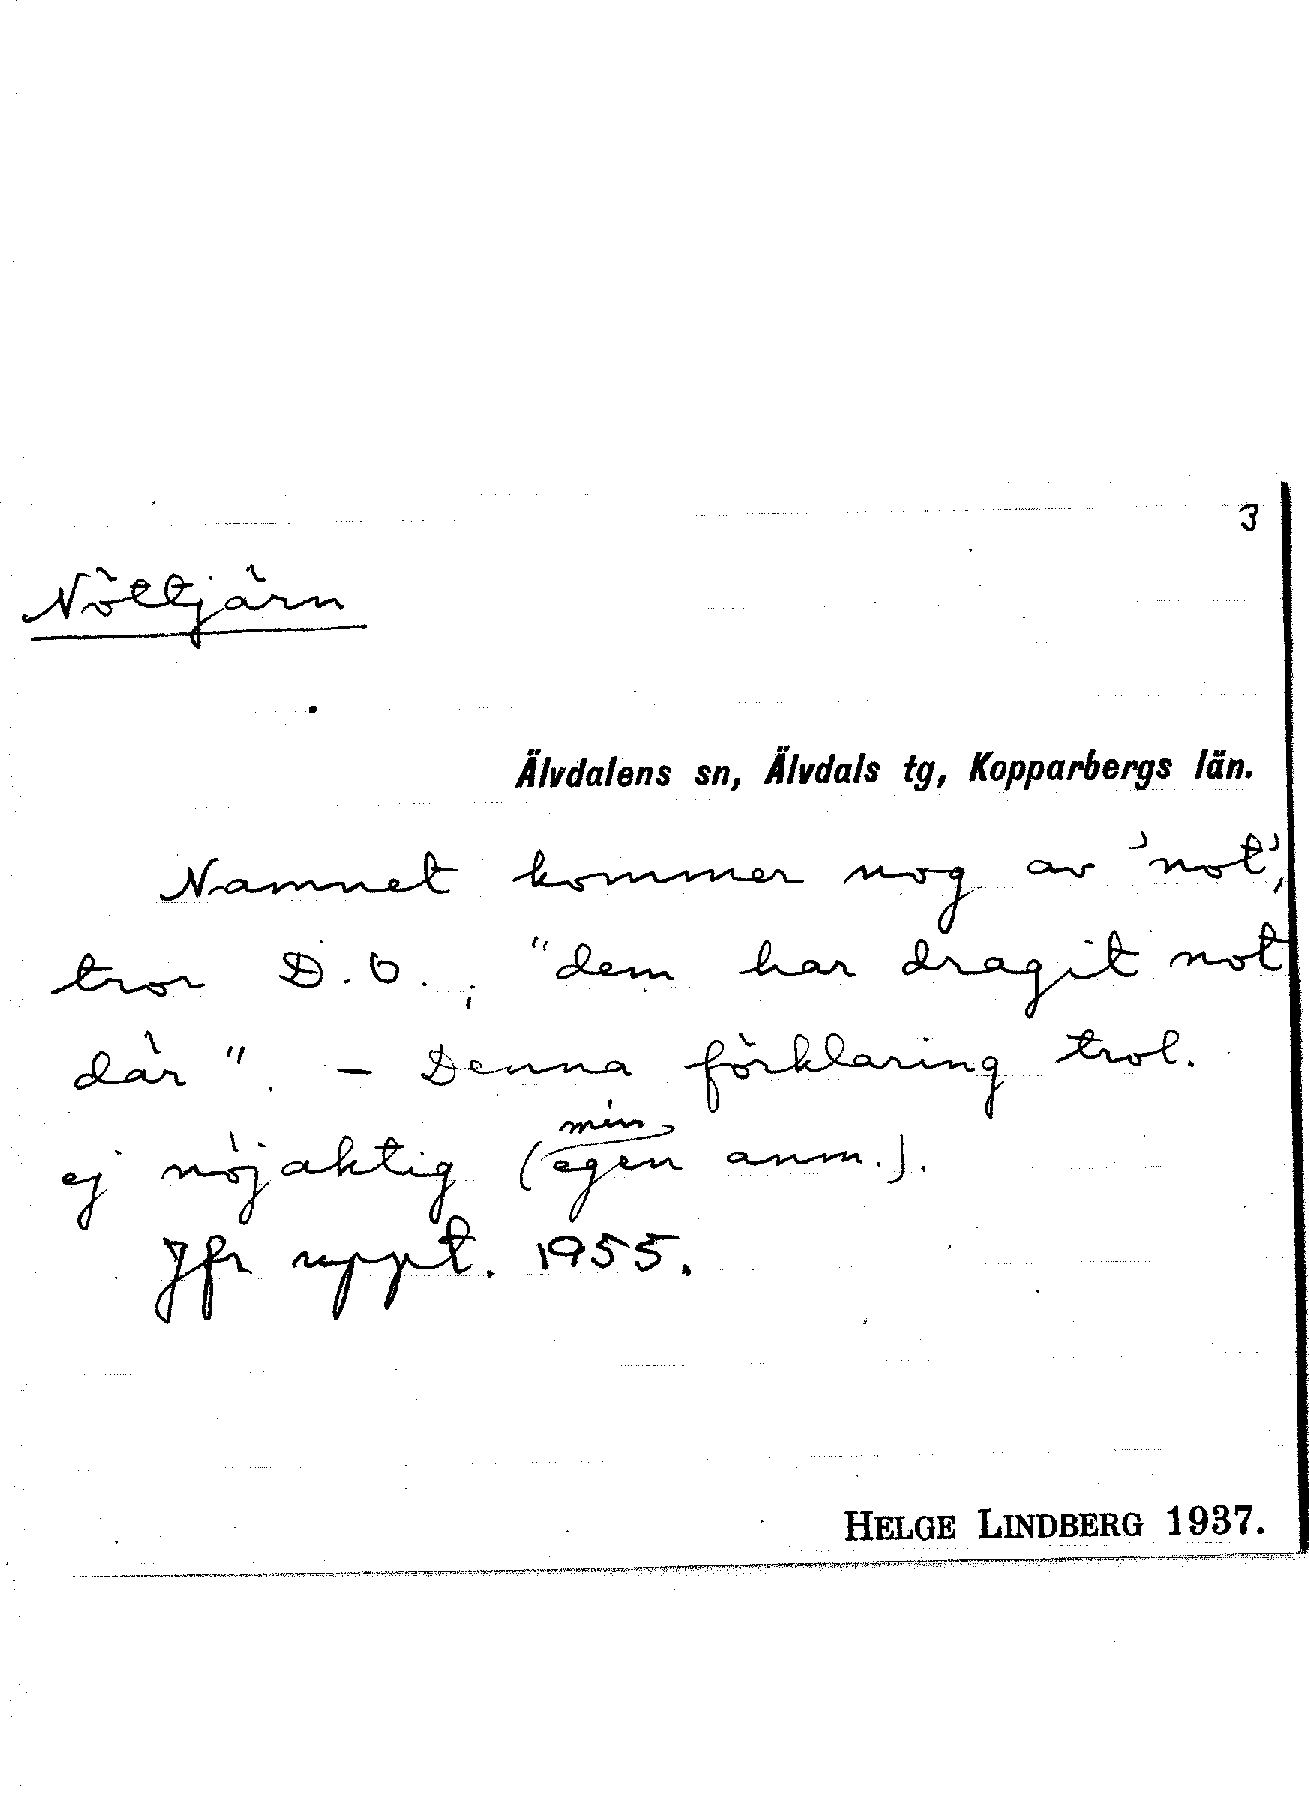 3
Nöttjärn
Älvdalens sn, Älvdals tg, Kopparbergs län.
Namnet kommer nog av 'not',
tror D.O.; "dem har dragit not
där". – Denna förklaring trol.
ej nöjaktig (min egen anm.).
Jfr uppt. 1955.
HELGE LINDBERG 1937.